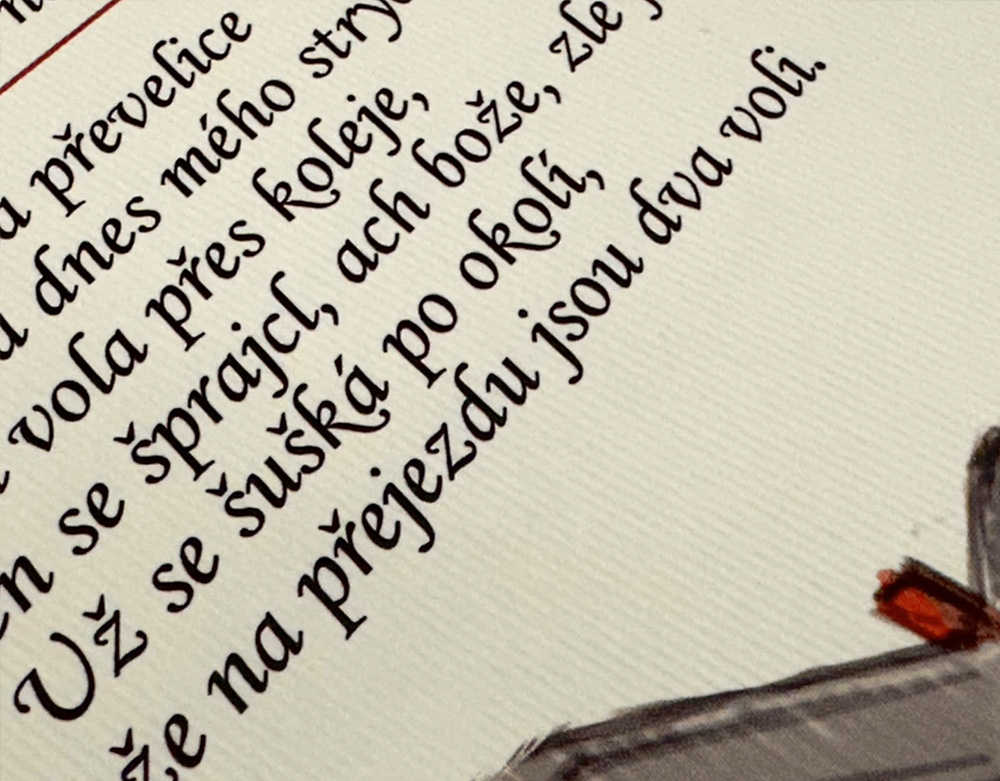 převelice
dnes mého
vola přes koleje,
se šprajcl, ach bože, zle
Už se šušká po okolí,
že na přejezdu jsou dva voli.